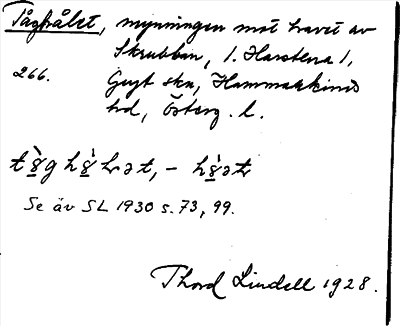 Tåghålet, mynningen mot havet av
Skrubban, 1. Harstena 1,
266. Gryt skn, Hammarkinds
hd, Österg. l.
Se äv SL 1930 s. 73, 99.
Thord Lindell 1928.